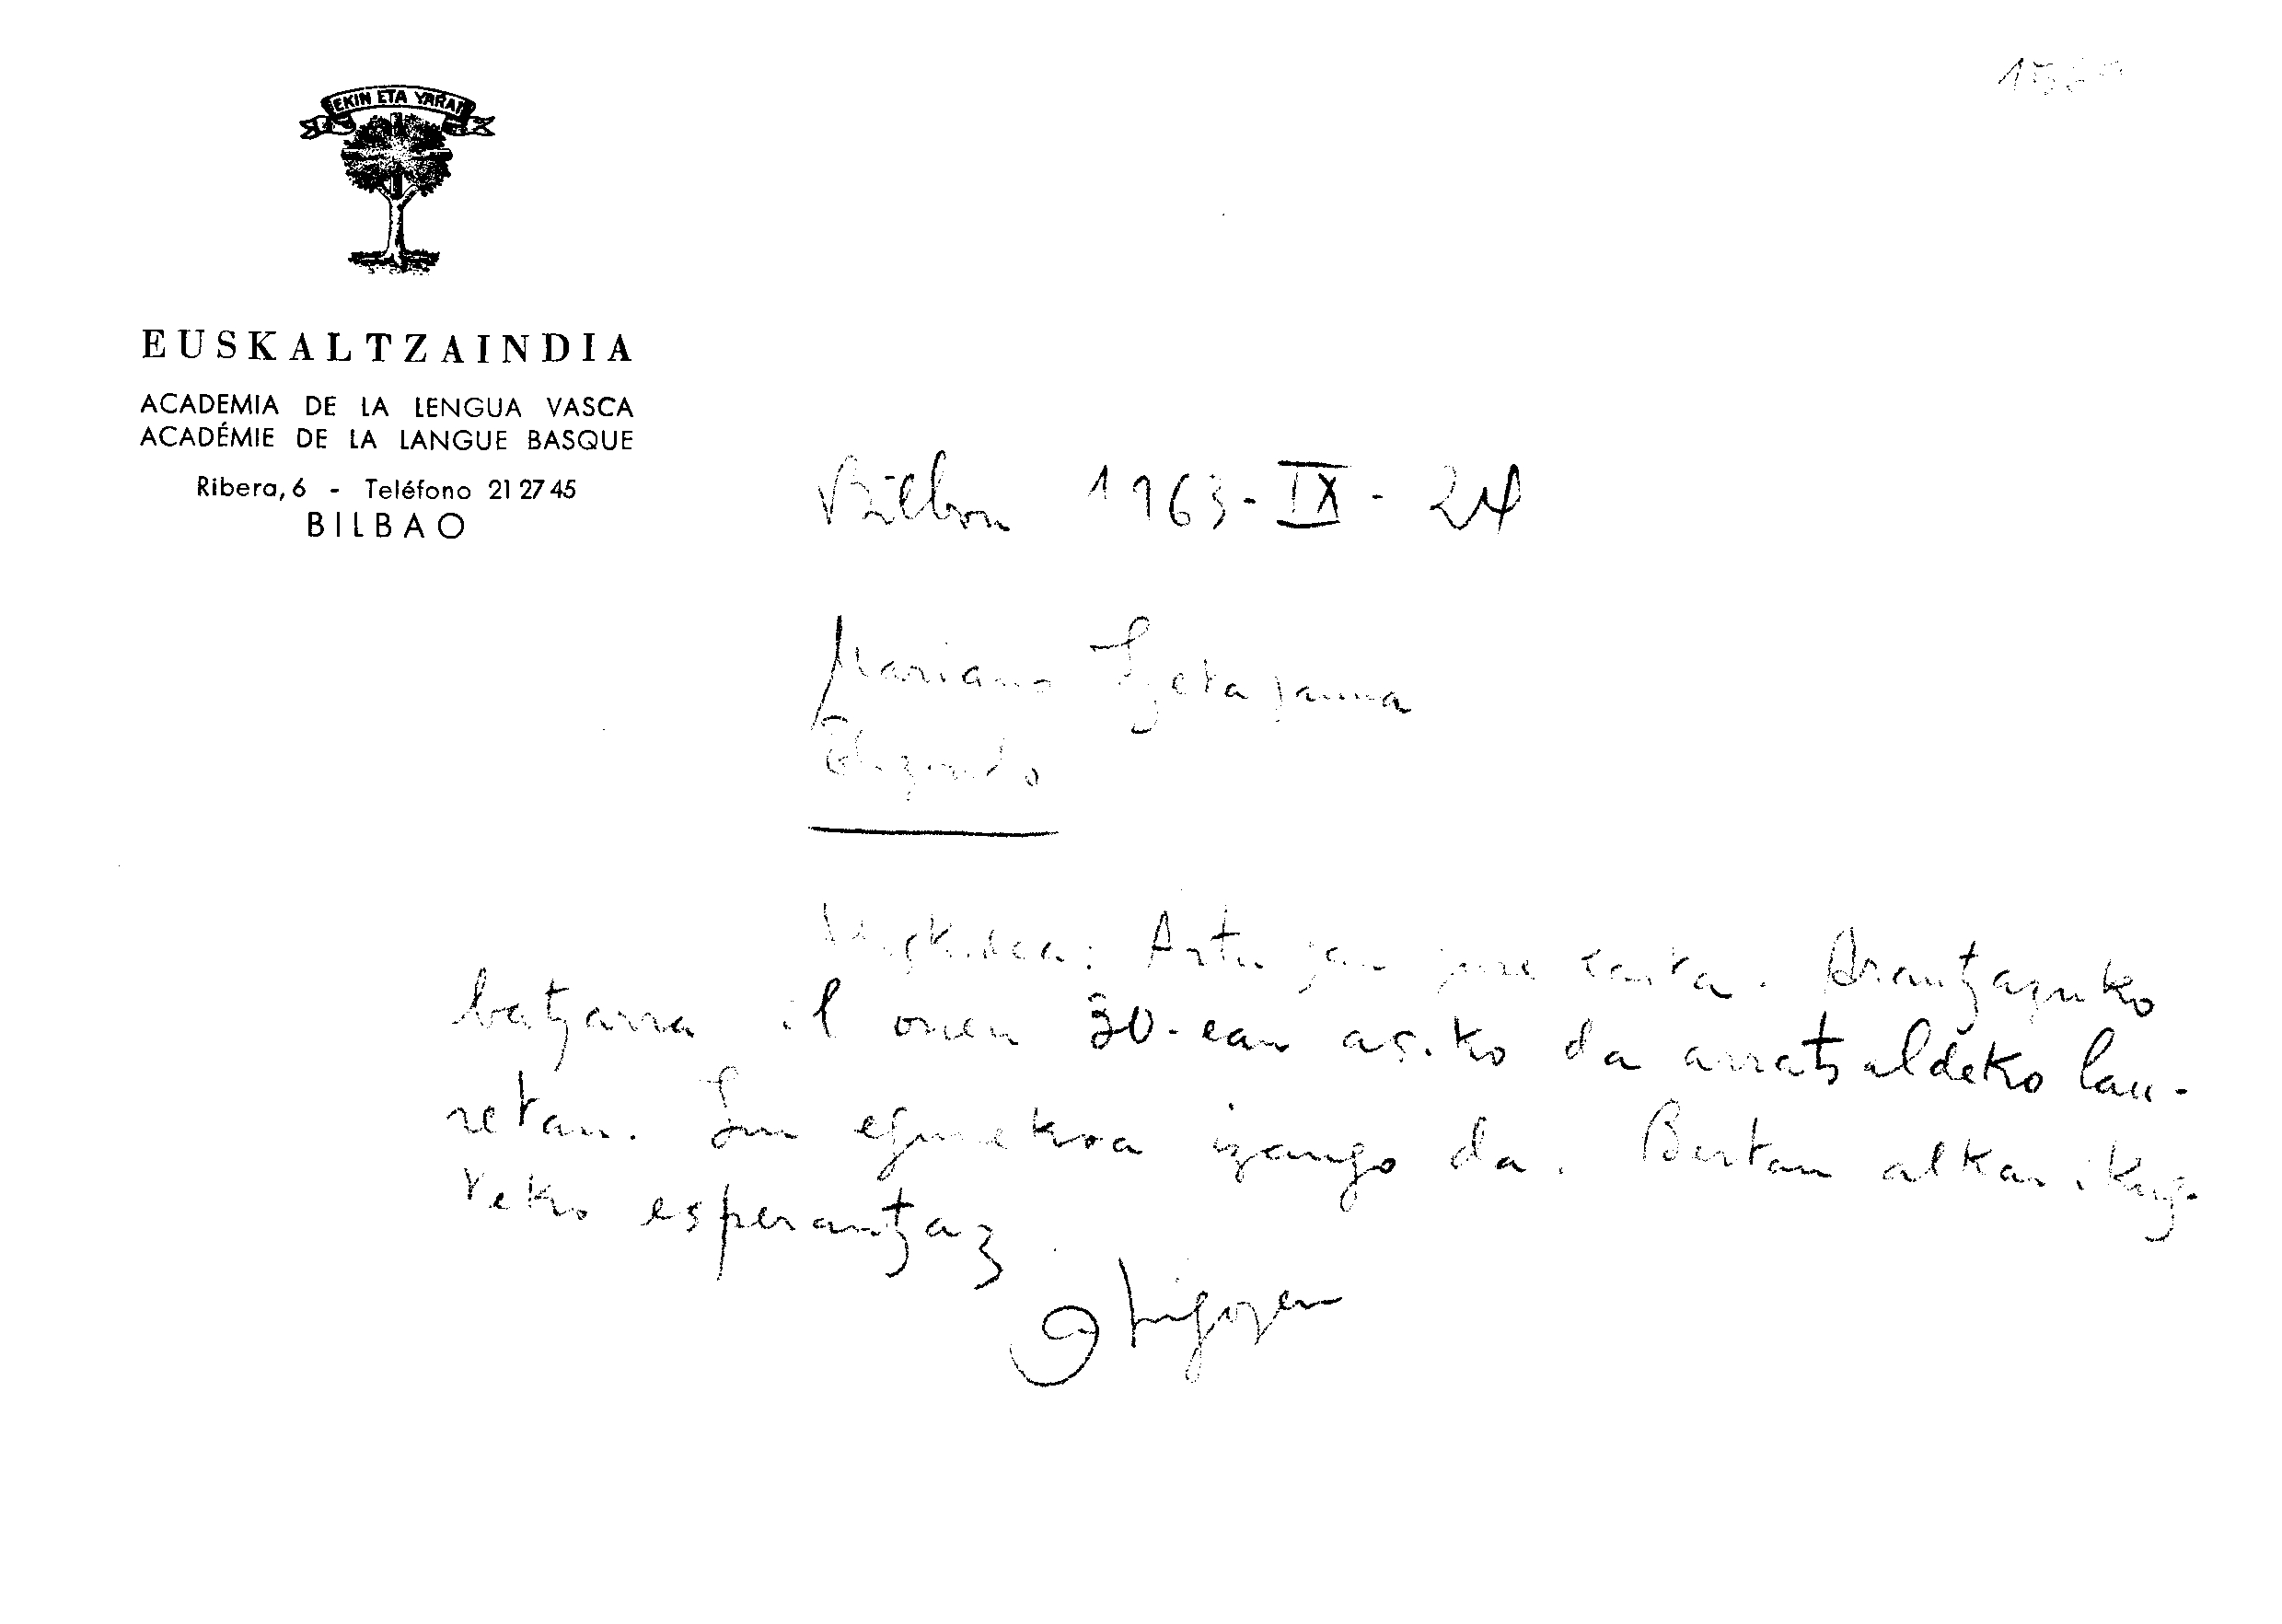 EKIN ETA YARRAI
EUSKALTZAINDIA
ACADEMIA DE LA LENGUA VASCA
ACADÉMIE DE LA LANGUE BASQUE
Ribera, 6 - Teléfono 21 27 45
BILBAO
Bilbon 1963-IX-24
Mariano Izeta jauna
Elizondo
Adiskidea: Artu zan zure carta. Arantzazuko
batzarra il onen 30-ean asiko da arratsaldeko lau-
retan. Iru egunekoa izango da. Bertan alkar ikus-
teko esperantzaz